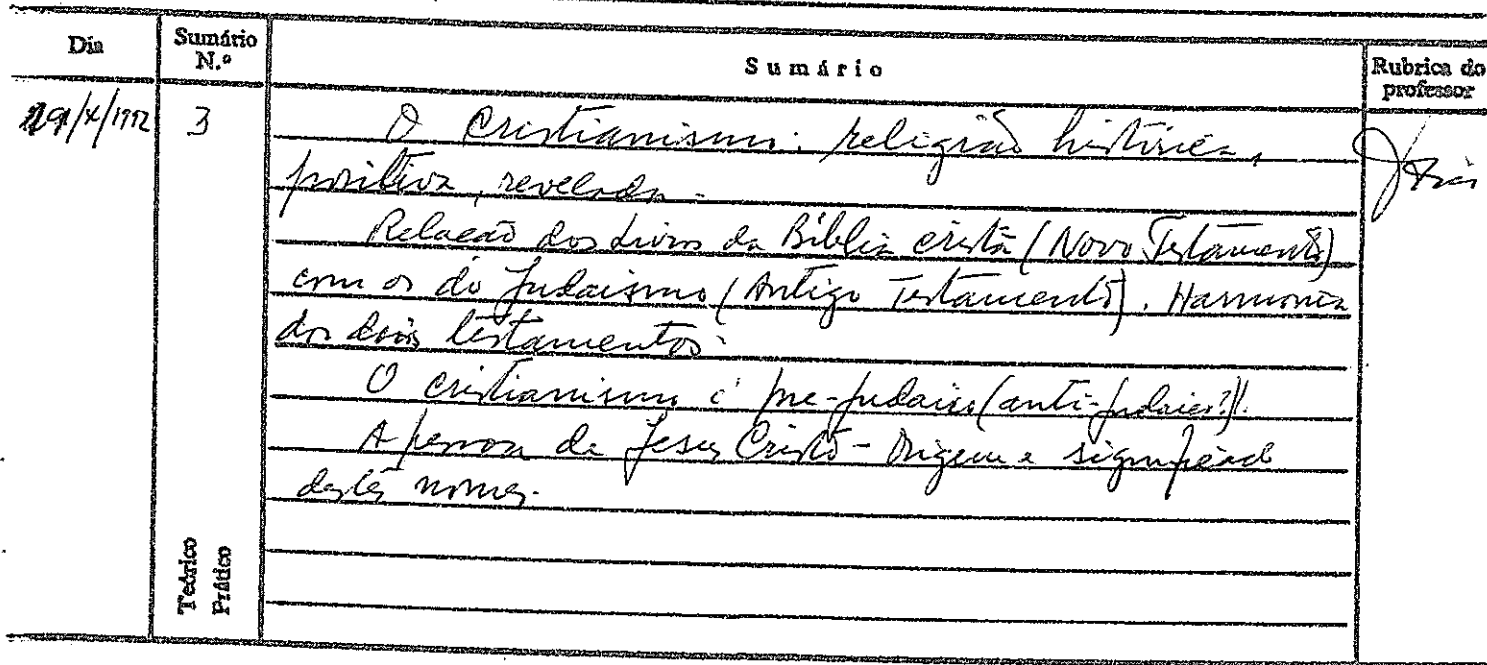 Dia
Sumário N.º
Sumário
Rubrica do professor
/X/1992
3
O Cristianismo: religião histórica,
positiva, revelada.
Relação dos Livros da Bíblia cristã (Novo Testamento)
com os do Judaismo (Antigo Testamento). Harmonia
dos dois testamentos.
O cristianismo é judaico (anti-judaico?)!
A pessoa de Jesus Cristo - Origem e significado
destes nomes.
Teórico
Prático